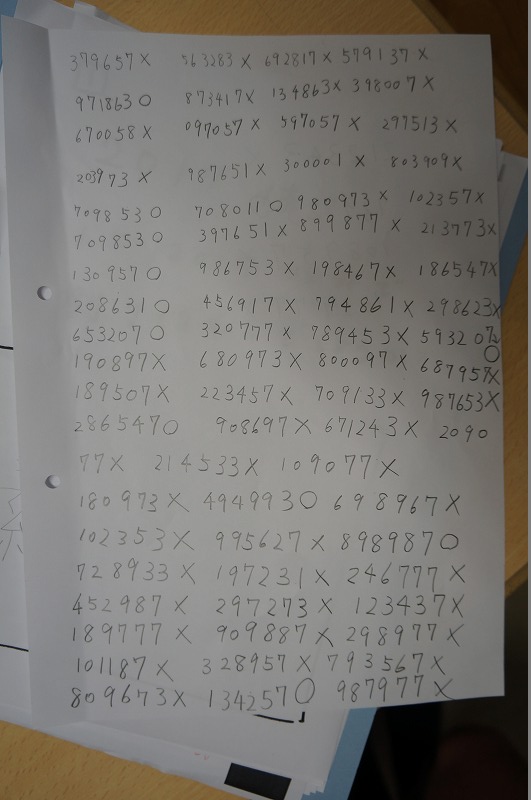 379657× 563283× 692817× 579137×
971863○ 873417× 134863× 398007×
670058× 097057× 597057× 297513×
203973× 987651× 300001× 803909×
709853○ 708011○ 980973× 102357×
709853○ 397651× 899877× 213773×
130957○ 986753× 198467× 186547×
208631○ 456917× 794861× 298623×
653207○ 320777× 789453× 593207
○
190897× 680973× 800097× 687957×
189507× 223457× 709133× 987653×
286547○ 908697× 671243× 2090
77× 214533× 109077×
180973× 494993○ 698967×
102353× 995627× 898987○
728933× 197231× 246777×
452987× 297273× 123437×
189777× 909887× 298977×
101187× 328957× 793567×
809673× 134257○ 987977×